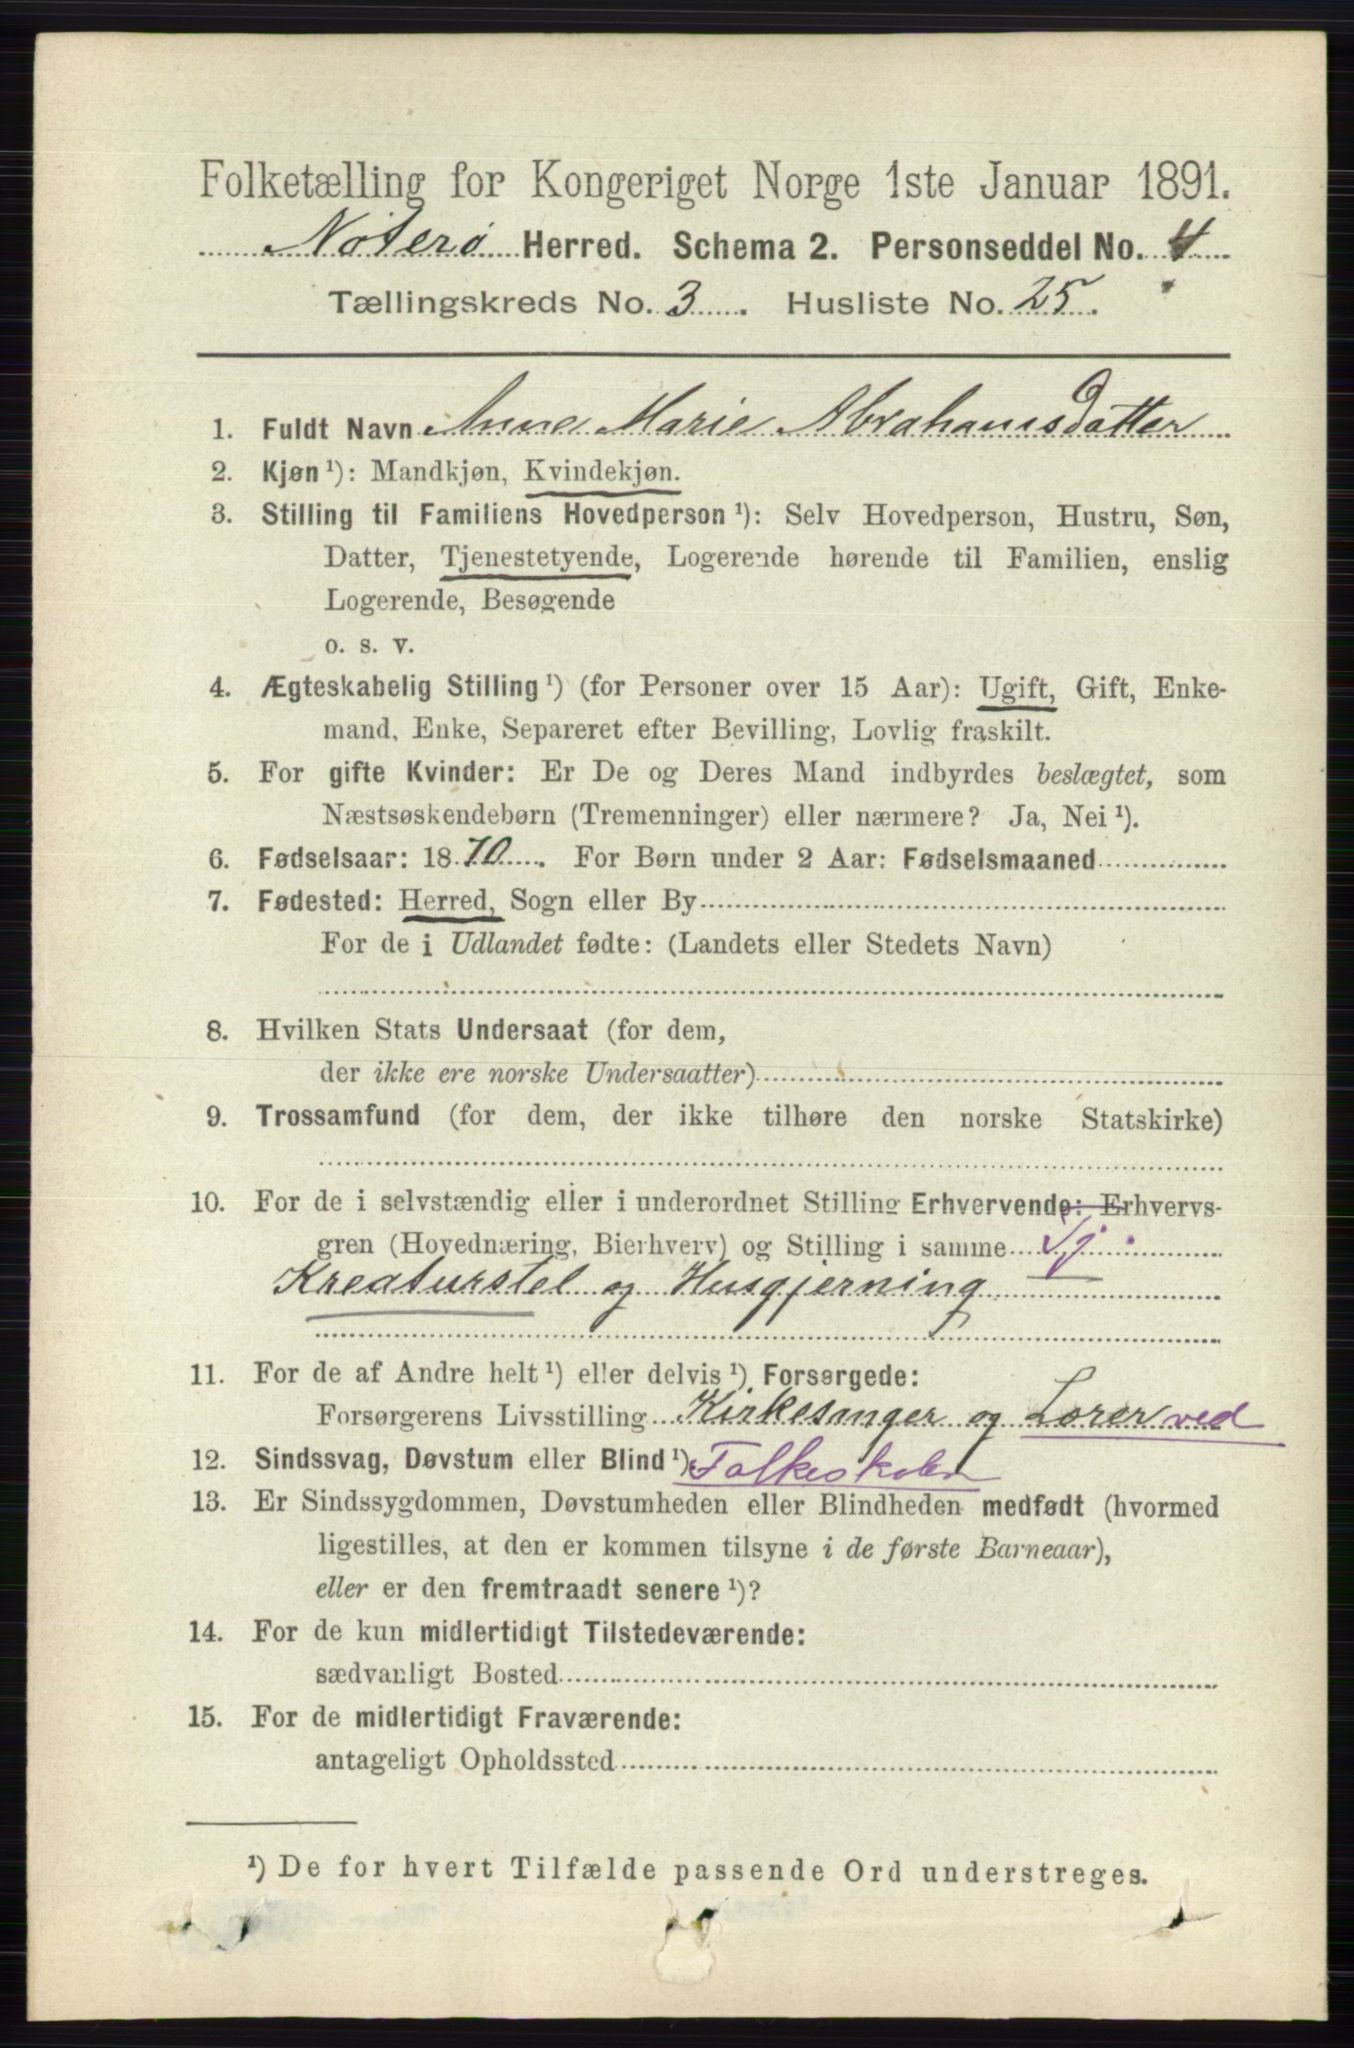 Folketælling for Kongeriget Norge 1ste Januar 1891.
Nøterø Herred. Schema 2. Personseddel No. 4
Tællingskreds No. 3. Husliste No. 25.
1. Fuldt Navn Anne Marie Abrahamsdatter
2. Kjøn ¹): Mandkjøn, Kvindekjøn.
3. Stilling til Familiens Hovedperson ¹): Selv Hovedperson, Hustru, Søn,
Datter, Tjenestetyende, Logerende hørende til Familien, enslig
Logerende, Besøgende
o. s. v.
4. Ægteskabelig Stilling ¹) (for Personer over 15 Aar): Ugift, Gift, Enke-
mand, Enke, Separeret efter Bevilling, Lovlig fraskilt.
5. For gifte Kvinder: Er De og Deres Mand indbyrdes beslægtet, som
Næstsøskendebørn (Tremenninger) eller nærmere? Ja, Nei ¹).
6. Fødselsaar: 1870. For Børn under 2 Aar: Fødselsmaaned
7. Fødested: Herred, Sogn eller By
For de i Udlandet fødte: (Landets eller Stedets Navn)
8. Hvilken Stats Undersaat (for dem,
der ikke ere norske Undersaatter)
9. Trossamfund (for dem, der ikke tilhøre den norske Statskirke)
10. For de i selvstændig eller i underordnet Stilling Erhvervende: Erhvervs-
gren (Hovednæring, Bierhverv) og Stilling i samme Tj.
Kreaturstel og Husgjerning
11. For de af Andre helt ¹) eller delvis ¹) Forsørgede:
Forsørgerens Livsstilling Kirkesanger og Lærer ved
12. Sindssvag, Døvstum eller Blind ¹). Folkeskolen
13. Er Sindssygdommen, Døvstumheden eller Blindheden medfødt (hvormed
ligestilles, at den er kommen tilsyne i de første Barneaar),
eller er den fremtraadt senere ¹)?
14. For de kun midlertidigt Tilstedeværende:
sædvanligt Bosted
15. For de midlertidigt Fraværende:
antageligt Opholdssted
¹) De for hvert Tilfælde passende Ord understreges.